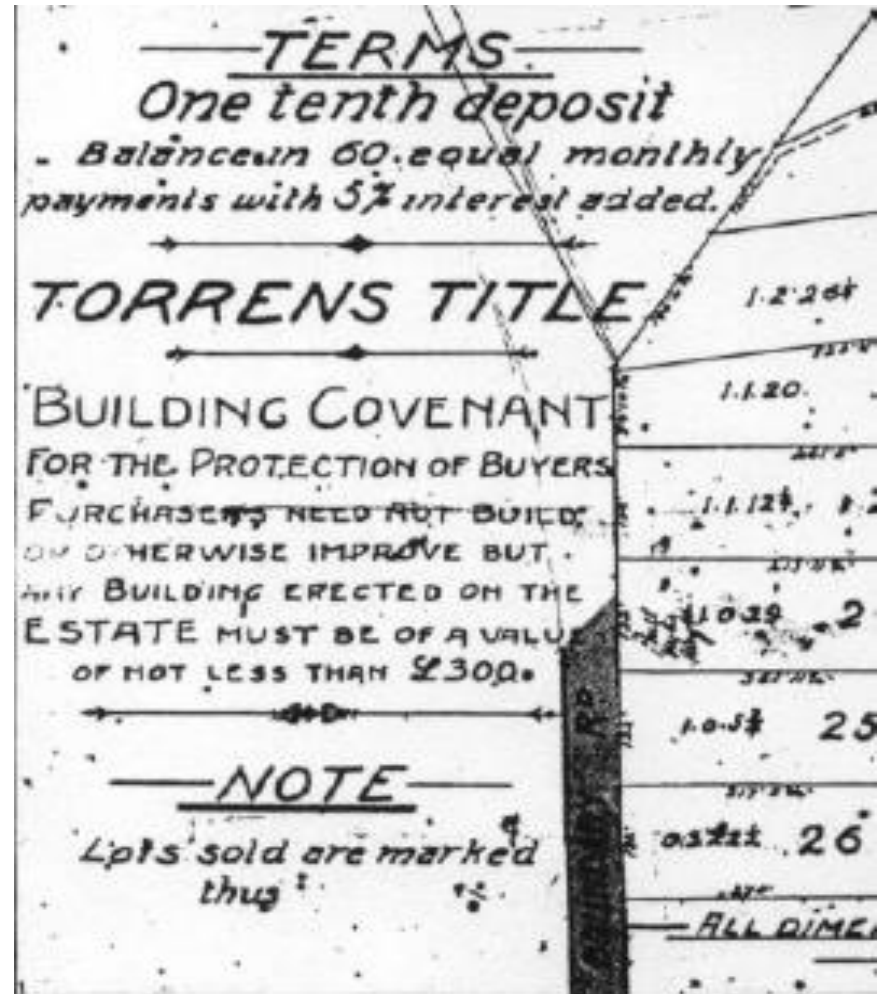 TERMS
One tenth deposit
Balance in 60 equal monthly
payments with 5% interest added.
TORRENS TITLE
BUILDING COVENANT
FOR THE PROTECTION OF BUYERS
PURCHASERS NEED NOT BUILD
OR OTHERWISE IMPROVE BUT
ANY BUILDING ERECTED ON THE
ESTATE MUST BE OF A VALUE
OF NOT LESS THAN £300.
NOTE
Lots sold are marked
thus
1.1.20.
25
26
ALL DIME